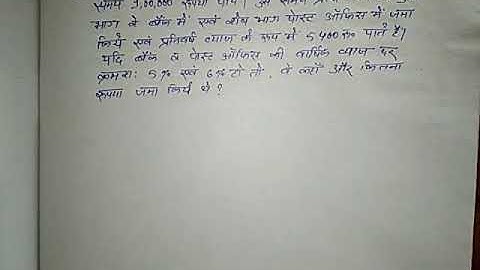 समय 1,00,000 रूपया पाये। इस
भाग वे बैंक में एवं शेष भाग पोस्ट ऑफिस में जमा
किये एवं प्रतिवर्ष व्याज के रूप में 5400 रू० पाते हैं।
यदि बैंक व पोस्ट ऑफिस की वार्षिक व्याज दर
क्रमशः 5% एवं 6% हो तो, वे कहाँ और कितना
रूपया जमा किये थे ?